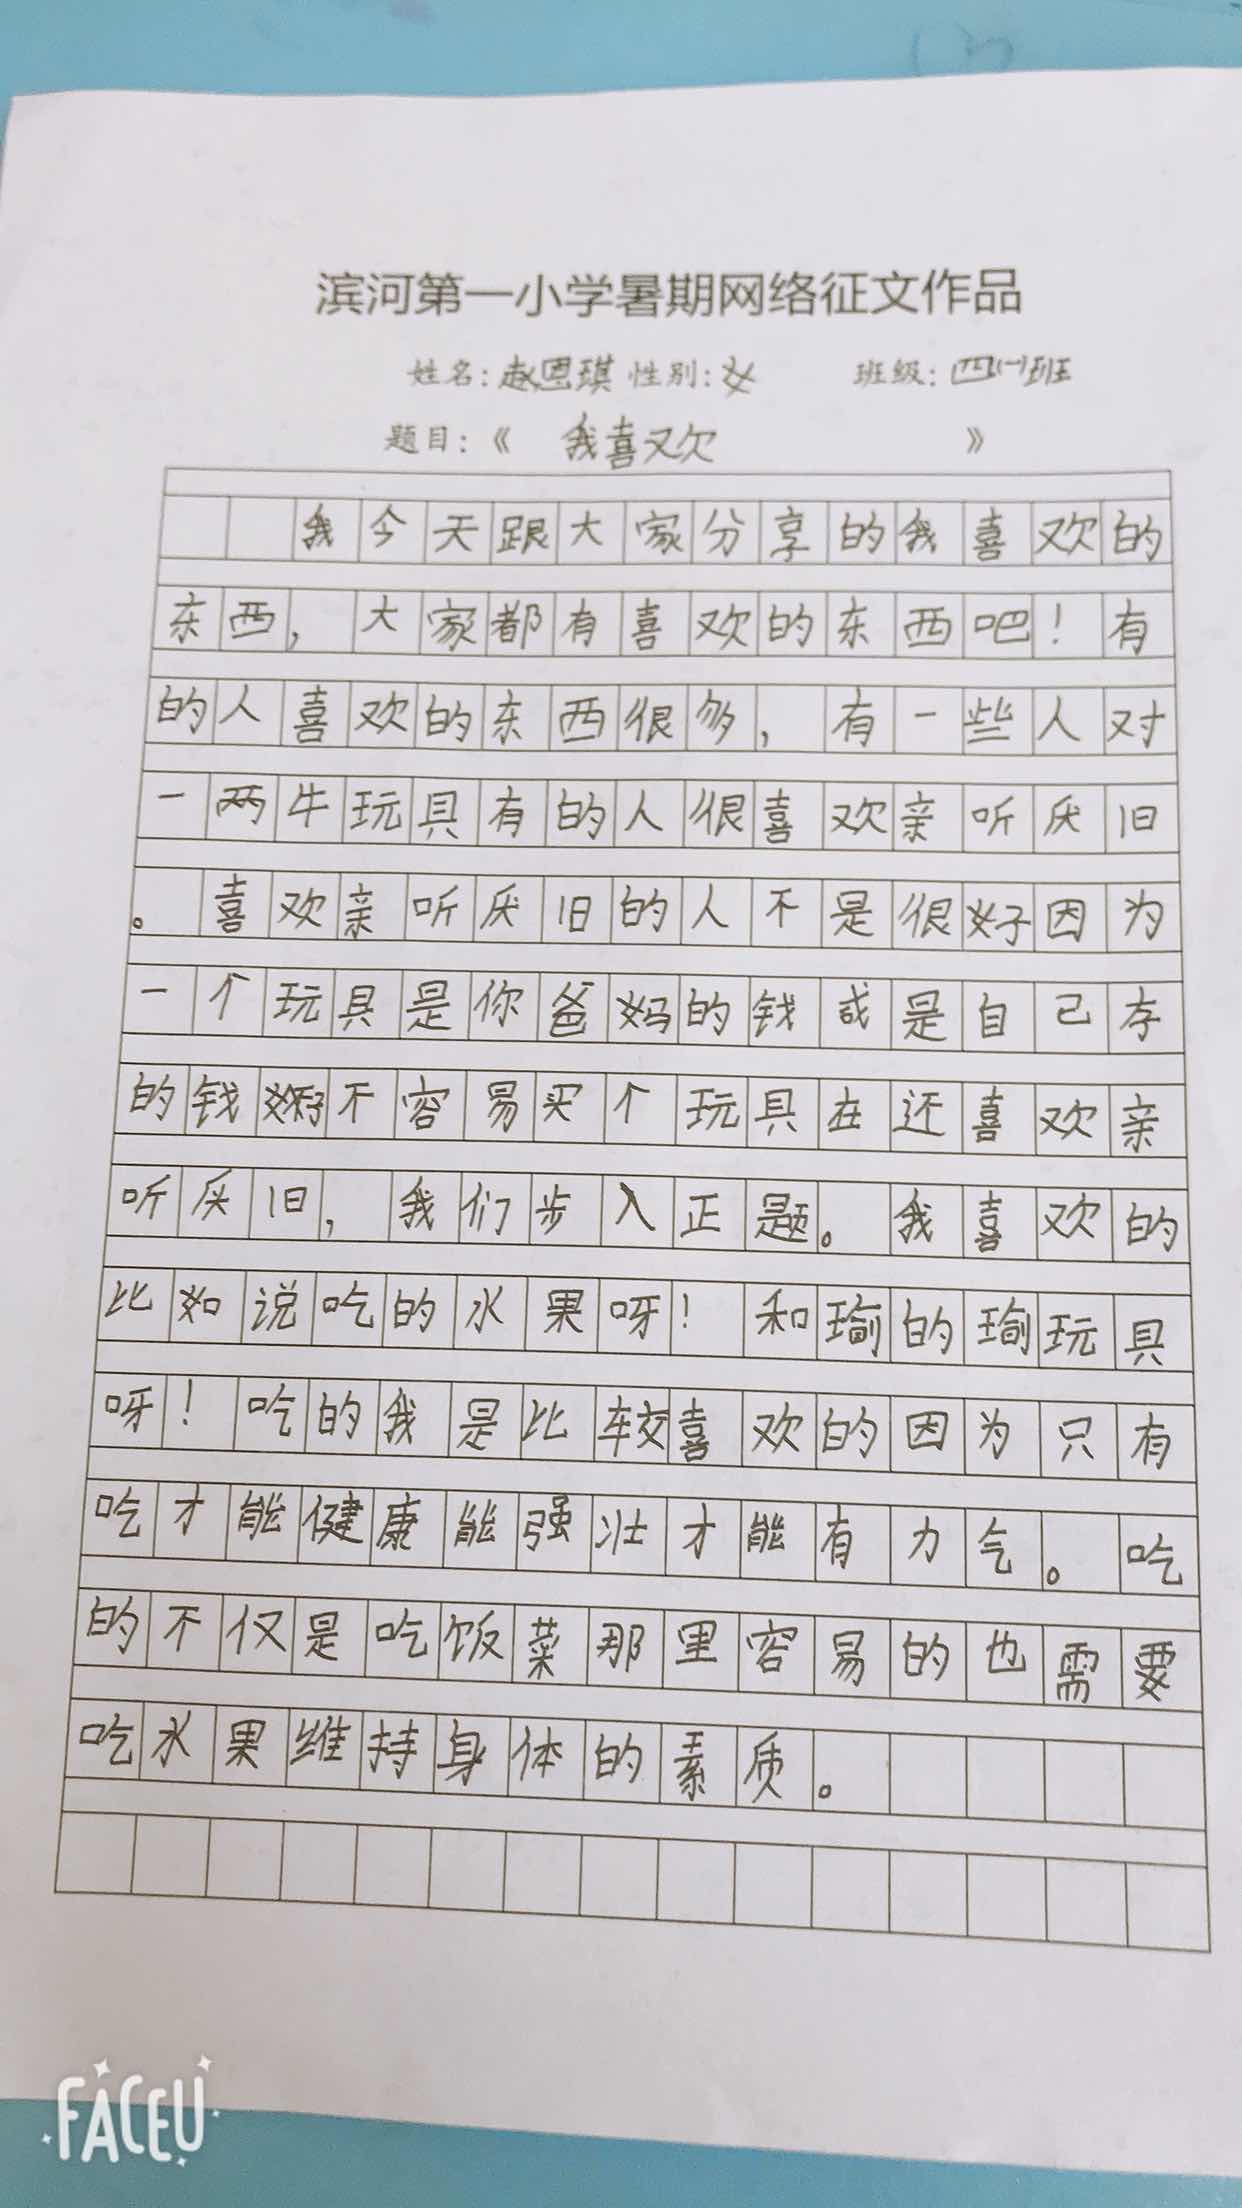 滨河第一小学暑期网络征文作品
姓名:赵恩琪 性别:女 班级:四(一)班
题目:《 我喜欢 》
我今天跟大家分享的我喜欢的
东西,大家都有喜欢的东西吧!有
的人喜欢的东西很多,有一些人对
一两牛玩具有的人很喜欢亲听厌旧
。喜欢亲听厌旧的人不是很好因为
一个玩具是你爸妈的钱或是自己存
的钱好不容易买个玩具在还喜欢亲
听厌旧,我们步入正题。我喜欢的
比如说吃的水果呀!和的玩具
呀!吃的我是比较喜欢的因为只有
吃才能健康能强壮才能有力气。吃
的不仅是吃饭菜那里容易的也需要
吃水果维持身体的素质。
FACEU